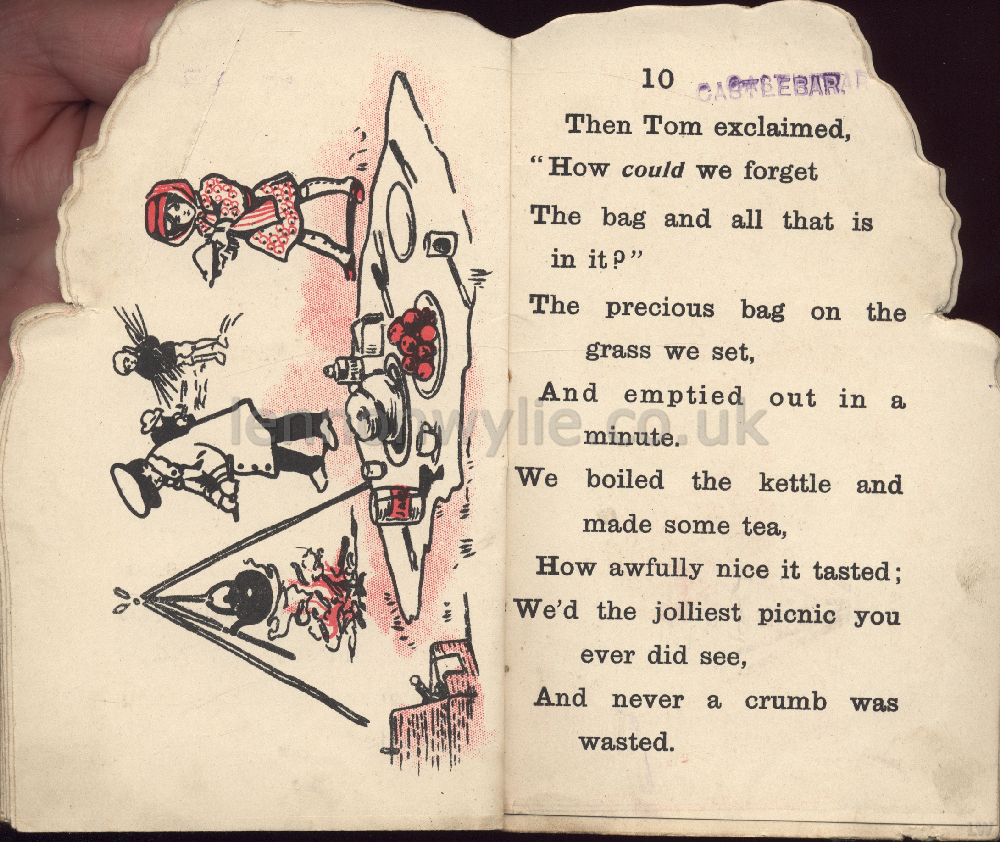 10
CASTLEBAR
Then Tom exclaimed,
"How could we forget
The bag and all that is
in it?"
The precious bag on the
grass we set,
And emptied out in a
minute.
We boiled the kettle and
made some tea,
How awfully nice it tasted;
We'd the jolliest picnic you
ever did see,
And never a crumb was
wasted.
lennonwylie.co.uk